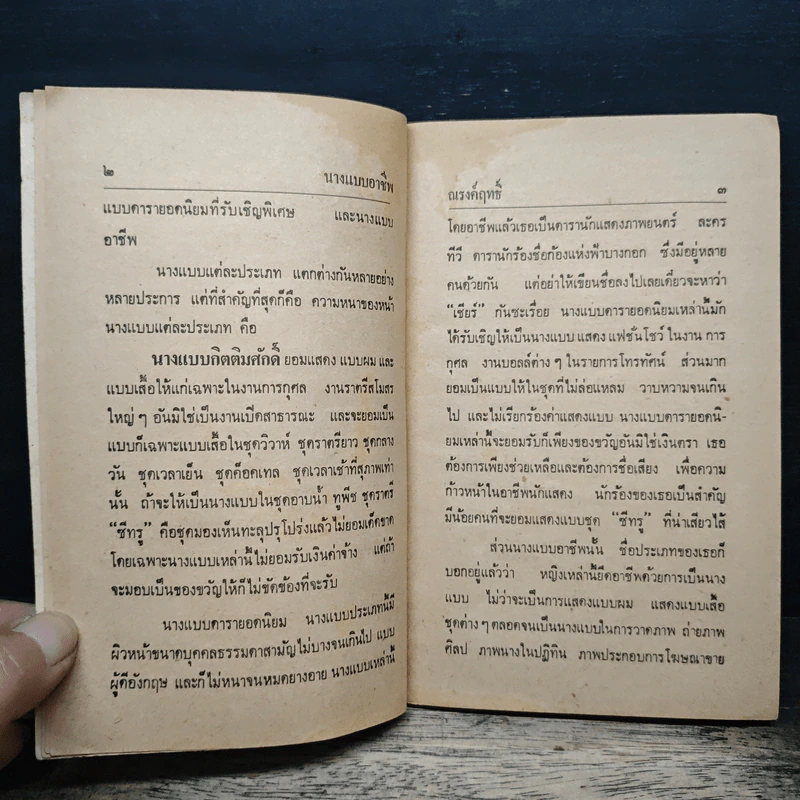 ๒ นางแบบอาชีพ
แบบดารายอดนิยมที่รับเชิญพิเศษ และนางแบบ
อาชีพ
นางแบบแต่ละประเภท แตกต่างกันหลายอย่าง
หลายประการ แต่ที่สำคัญที่สุดก็คือ ความหนาของหน้า
นางแบบแต่ละประเภท คือ
นางแบบกิตติมศักดิ์ ยอมแสดง แบบผม และ
แบบเสื้อให้แก่เฉพาะในงานการกุศล งานราตรีสโมสร
ใหญ่ ๆ อันมิใช่เป็นงานเปิดสาธารณะ และจะยอมเป็น
แบบก็เฉพาะแบบเสื้อในชุดวิวาห์ ชุดราตรียาว ชุดกลาง
วัน ชุดเวลาเย็น ชุดค็อคเทล ชุดเวลาเช้าที่สุภาพเท่า
นั้น ถ้าจะให้เป็นนางแบบในชุดอาบน้ำ ทูพีช ชุดราตรี
“ซีทรู” คือชุดมองเห็นทะลุปรุโปร่งแล้วไม่ยอมเด็ดขาด
โดยเฉพาะนางแบบเหล่านี้ไม่ยอมรับเงินค่าจ้าง แต่ถ้า
จะมอบเป็นของขวัญให้ก็ไม่ขัดข้องที่จะรับ
นางแบบดารายอดนิยม นางแบบประเภทนี้มี
ผิวหน้าขนาดบุคคลธรรมดาสามัญไม่บางจนเกินไป แบบ
ผู้ดีอังกฤษ และก็ไม่หนาจนหมดยางอาย นางแบบเหล่านี้
ณรงค์ฤทธิ์ ๓
โดยอาชีพแล้วเธอเป็นดารานักแสดงภาพยนตร์ ละคร
ทีวี ดารานักร้องชื่อก้องแห่งฟ้าบางกอก ซึ่งมีอยู่หลาย
คนด้วยกัน แต่อย่าให้เขียนชื่อลงไปเลยเดี๋ยวจะหาว่า
“เชียร์” กันซะเรื่อย นางแบบดารายอดนิยมเหล่านี้มัก
ได้รับเชิญให้เป็นนางแบบ แสดง แฟชั่นโชว์ ในงาน การ
กุศล งานบอลล์ต่าง ๆ ในรายการโทรทัศน์ ส่วนมาก
ยอมเป็นแบบให้ในชุดที่ไม่ล่อแหลม วาบหวามจนเกิน
ไป และไม่เรียกร้องค่าแสดงแบบ นางแบบดารายอดนิ-
ยมเหล่านี้จะยอมรับก็เพียงของขวัญอันมิใช่เงินตรา เธอ
ต้องการเพียงช่วยเหลือและต้องการชื่อเสียง เพื่อความ
ก้าวหน้าในอาชีพนักแสดง นักร้องของเธอเป็นสำคัญ
มีน้อยคนที่จะยอมแสดงแบบชุด “ซีทรู” ที่น่าเสียวไส้
ส่วนนางแบบอาชีพนั้น ชื่อประเภทของเธอก็
บอกอยู่แล้วว่า หญิงเหล่านี้ยึดอาชีพด้วยการเป็นนาง
แบบ ไม่ว่าจะเป็นการแสดงแบบผม แสดงแบบเสื้อ
ชุดต่าง ๆ ตลอดจนเป็นนางแบบในการวาดภาพ ถ่ายภาพ
ศิลป ภาพนางในปฏิทิน ภาพประกอบการโฆษณาขาย